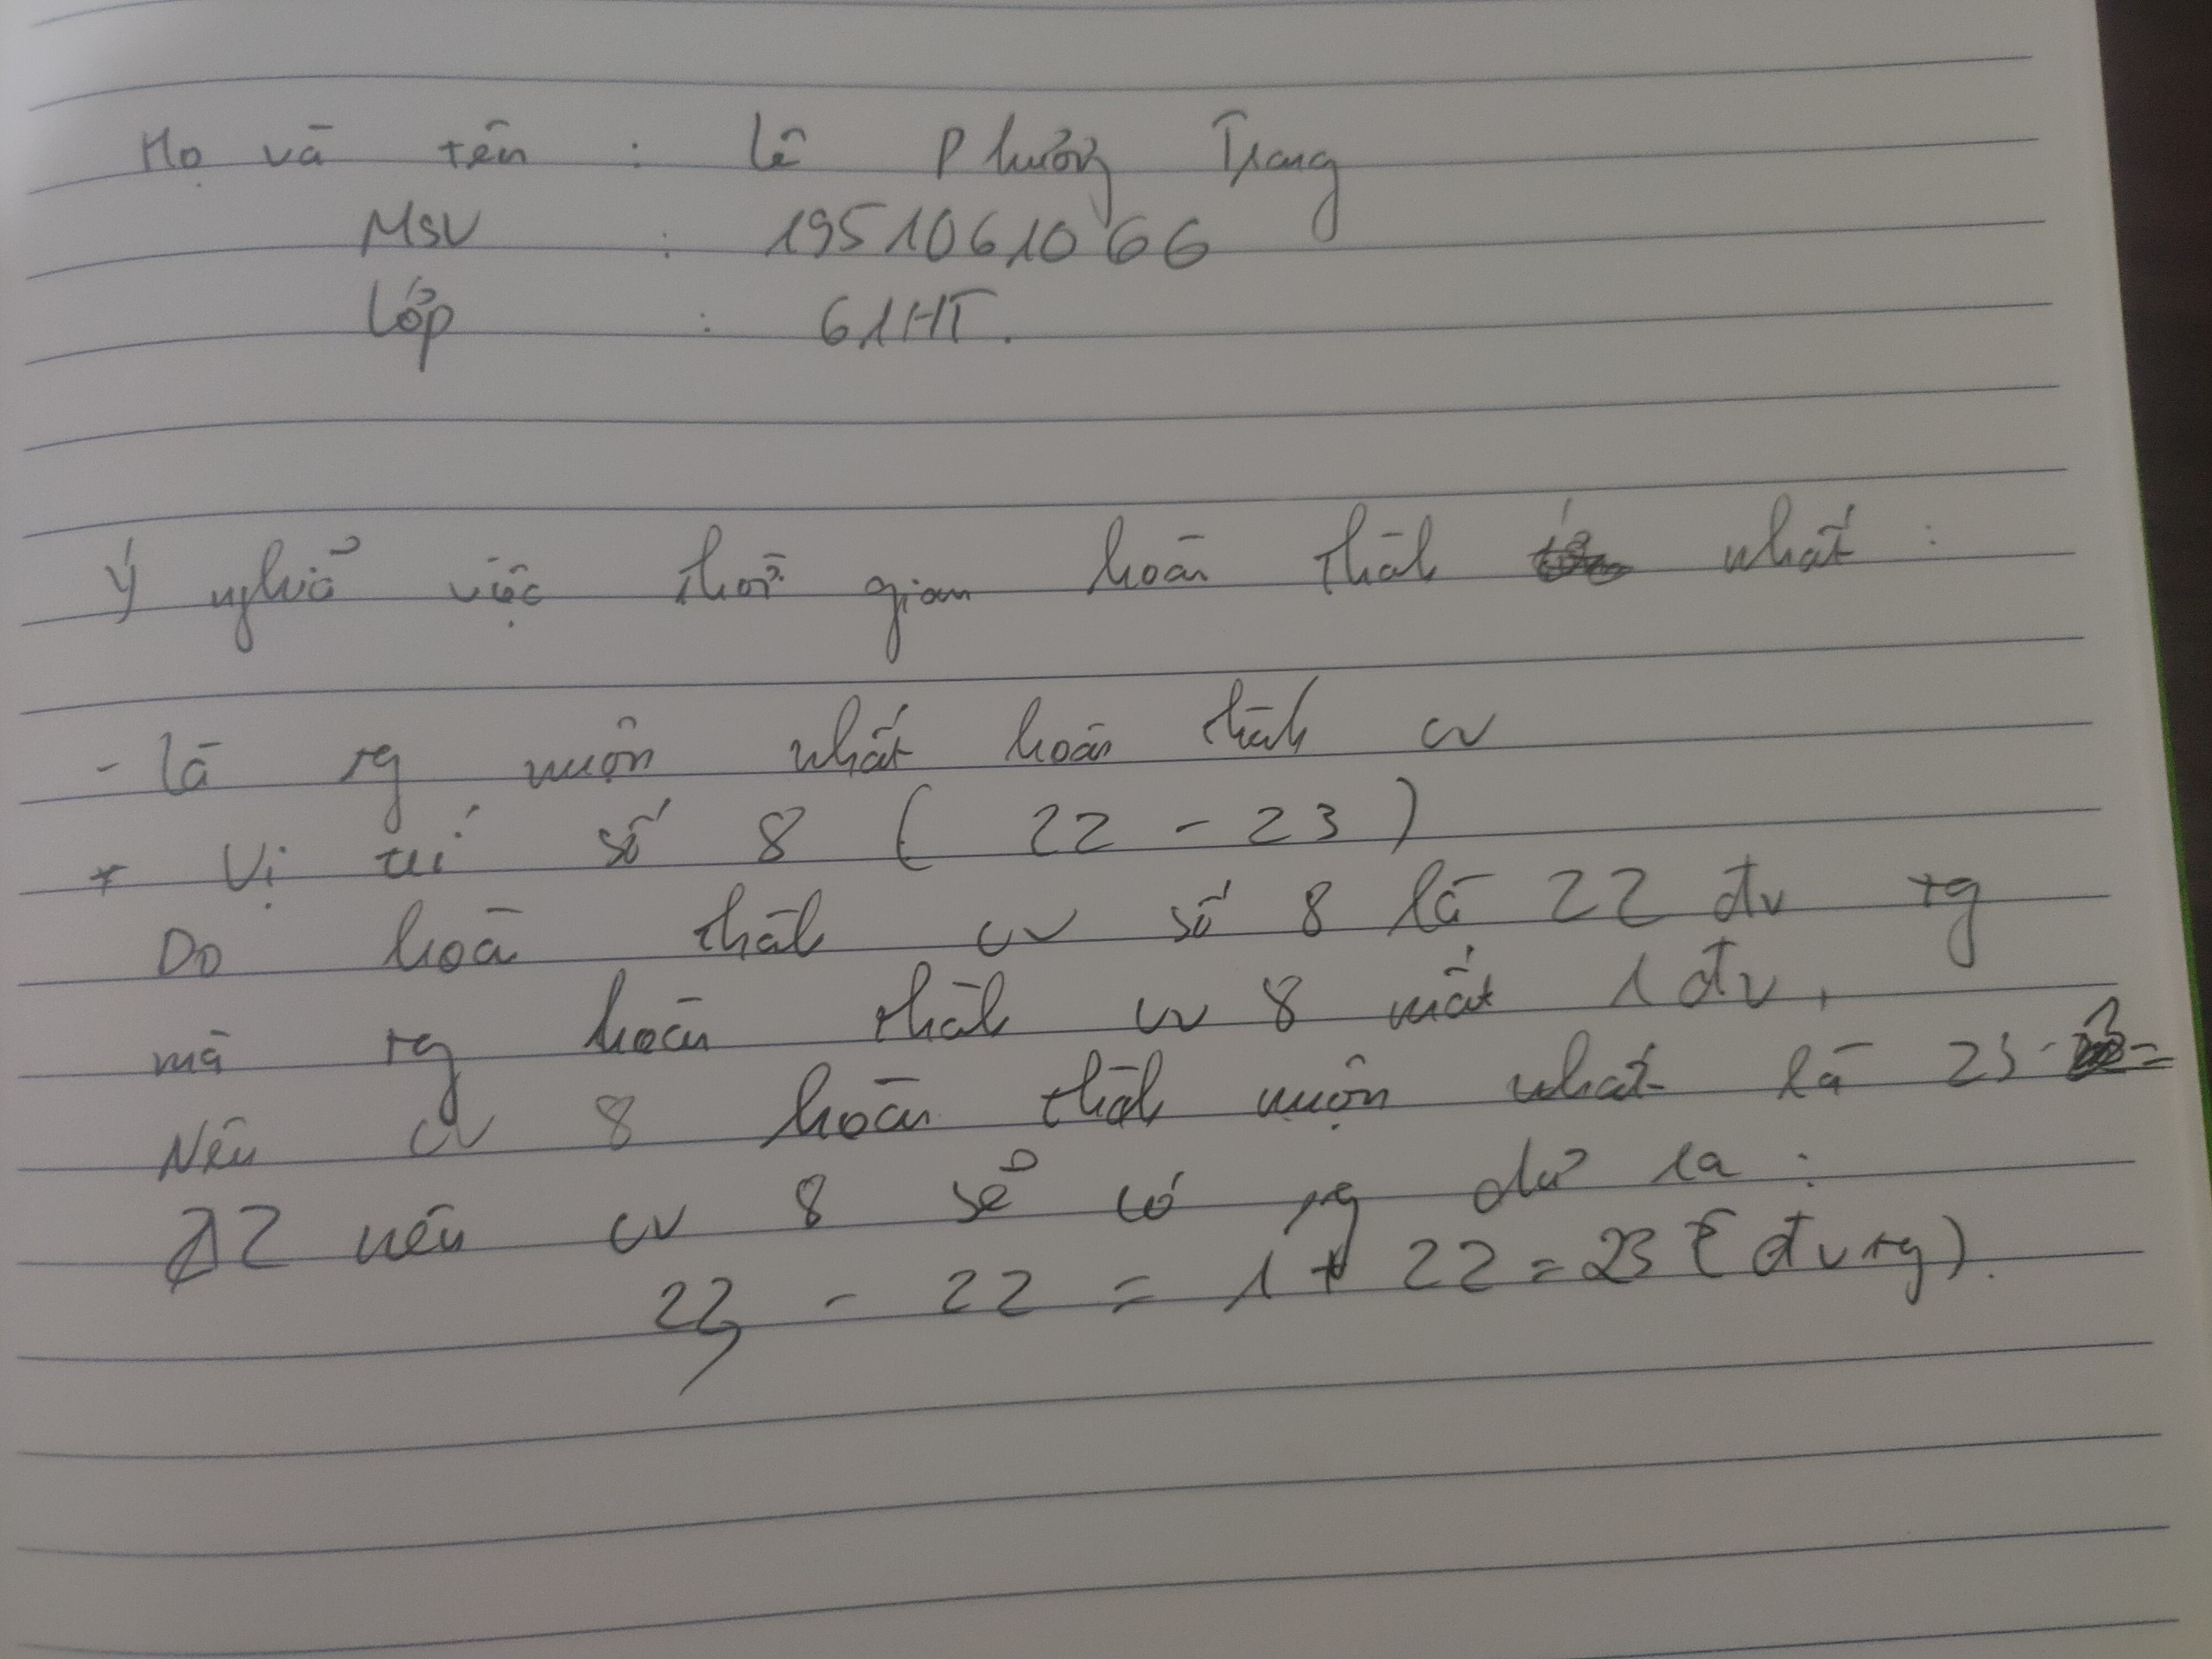 Họ và tên : Lê Phương Trang
MSV : 1951061066
Lớp : 61HT.
Ý nghĩa việc thời gian hoàn thành nhất :
- Là tg muộn nhất hoàn thành cv
* Vị trí số 8 ( 22 - 23 )
Do hoàn thành cv số 8 là 22 đv tg
mà tg hoàn thành cv 8 mất 1 đv,
Nên cv 8 hoàn thành muộn nhất là 23 - =
22 nên cv 8 sẽ có tg dư ra :
23 - 22 = 1 + 22 = 23 (đv tg).